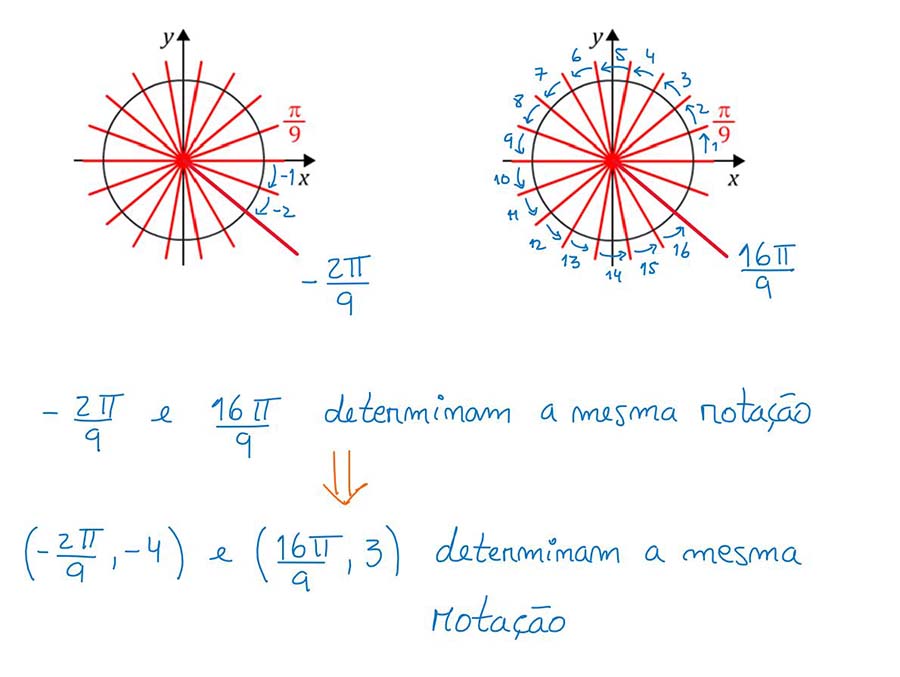 y
y
6 5 4
7 3
8 2
π/9
π/9
9 1
-1 x
10 x
-2
11
12 16
13 14 15
-2π/9
16π/9
-2π/9 e 16π/9 determinam a mesma rotação
⇓
(-2π/9, -4) e (16π/9, 3) determinam a mesma
rotação